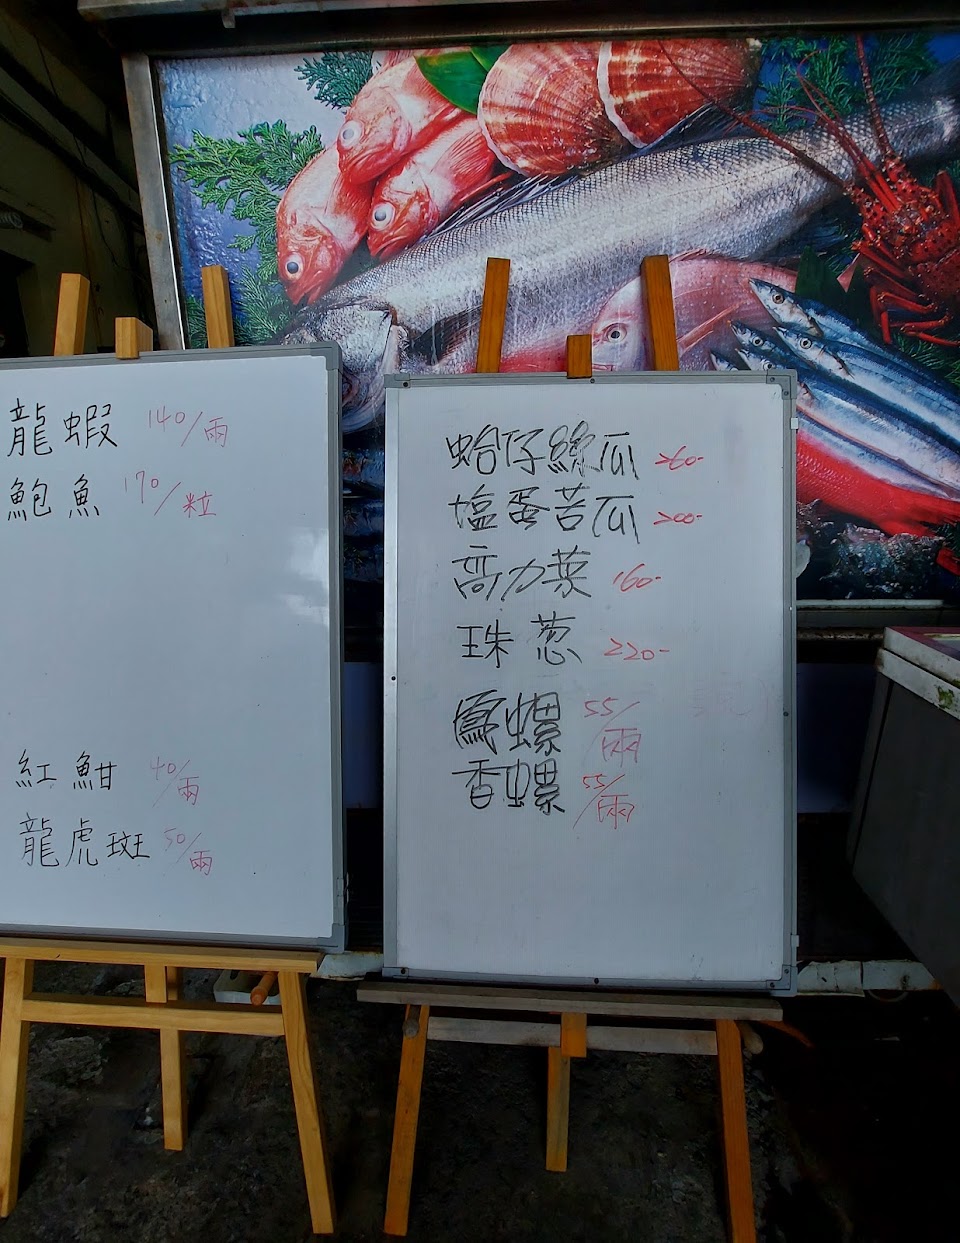 龍蝦 140/兩
鮑魚 170/粒
紅魽 40/兩
龍虎斑 50/兩
蛤仔絲瓜 260-
塩蛋苦瓜 200-
高力菜 160-
珠葱 220-
鳳螺 55/兩
香螺 55/兩